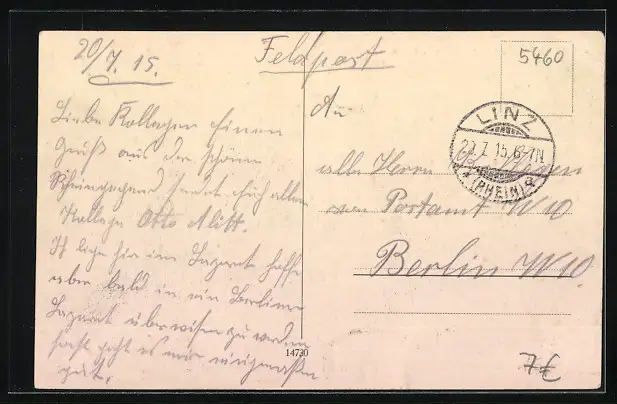 20/7. 15.
Feldpost
5460
Liebe Kollegen Einen
Gruß aus der schönen
Rheingegend sendet Euch allen
Kollege Otto
Ich liege hier im Lazarett hoffe
aber bald in ein Berliner
Lazarett überwiesen zu werden
sonst geht es mir einigermaßen
gut.
An
alle Herrn
vom Postamt W 10
Berlin W 10.
LINZ
20.7.15.6-7N
(RHEIN)
14730
7€